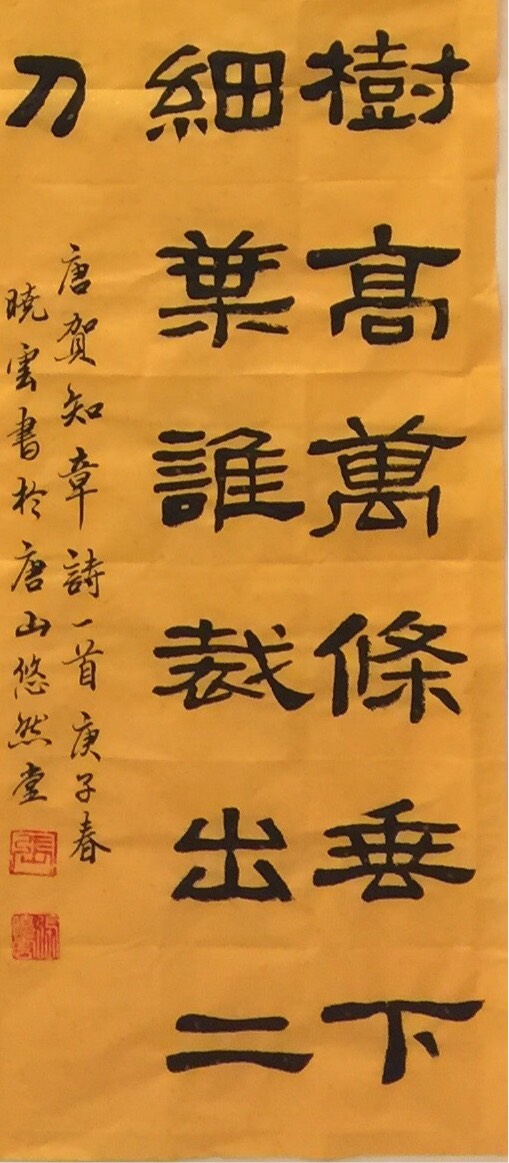 樹高萬條垂下
細葉誰裁出二
刀
唐賀知章詩一首 庚子春
曉雲書於唐山悠然堂
張